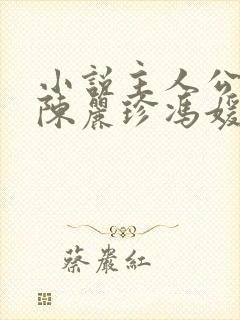 小說主人公
陳麗珍馮媛
蔡嚴紅